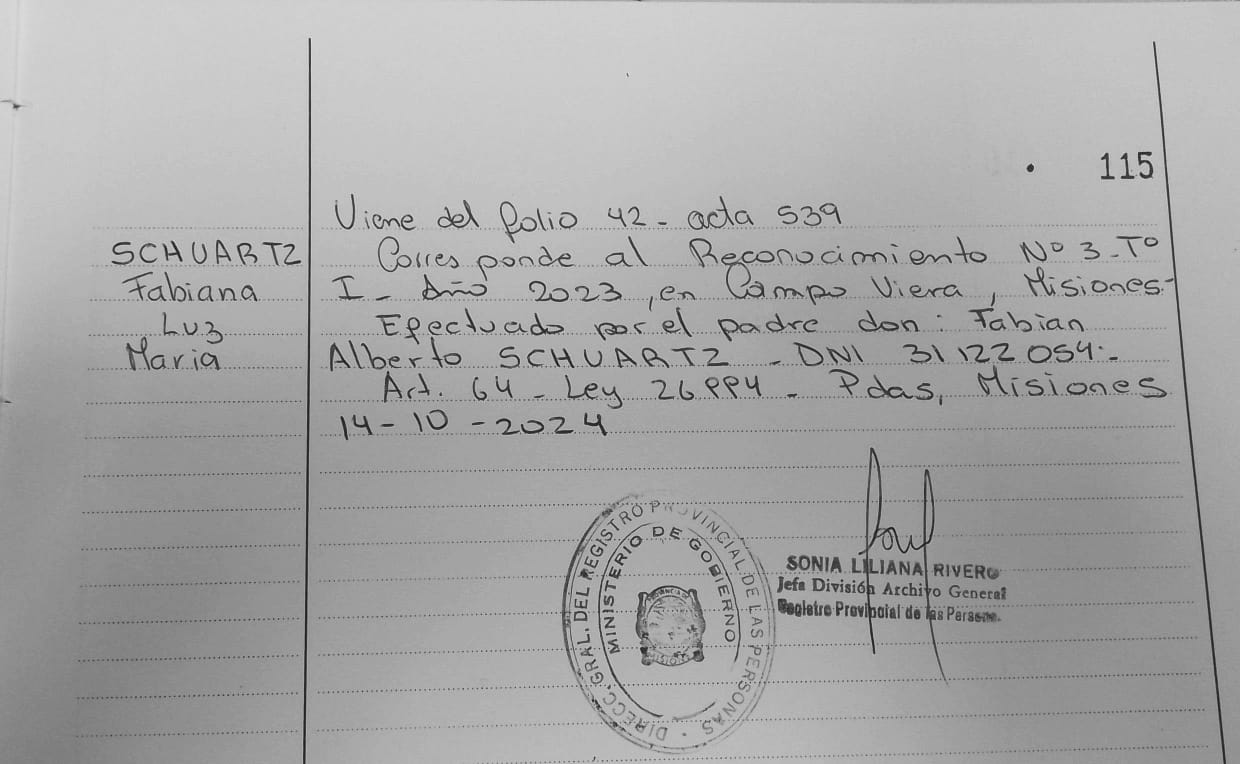 115
Viene del folio 42 - acta 539
SCHUARTZ
Fabiana
Luz
Maria
Corresponde al Reconocimiento Nº 3 - Tº
I - Año 2023, en Campo Viera, Misiones.-
Efectuado por el padre don: Fabian
Alberto SCHUARTZ - DNI 31122054.-
Art. 64 - Ley 26994 - Pdas, Misiones
14-10-2024
DIRECC. GRAL. DEL REGISTRO PROVINCIAL DE LAS PERSONAS
MINISTERIO DE GOBIERNO
SONIA LILIANA RIVERO
Jefa División Archivo General
Registro Provincial de las Person.